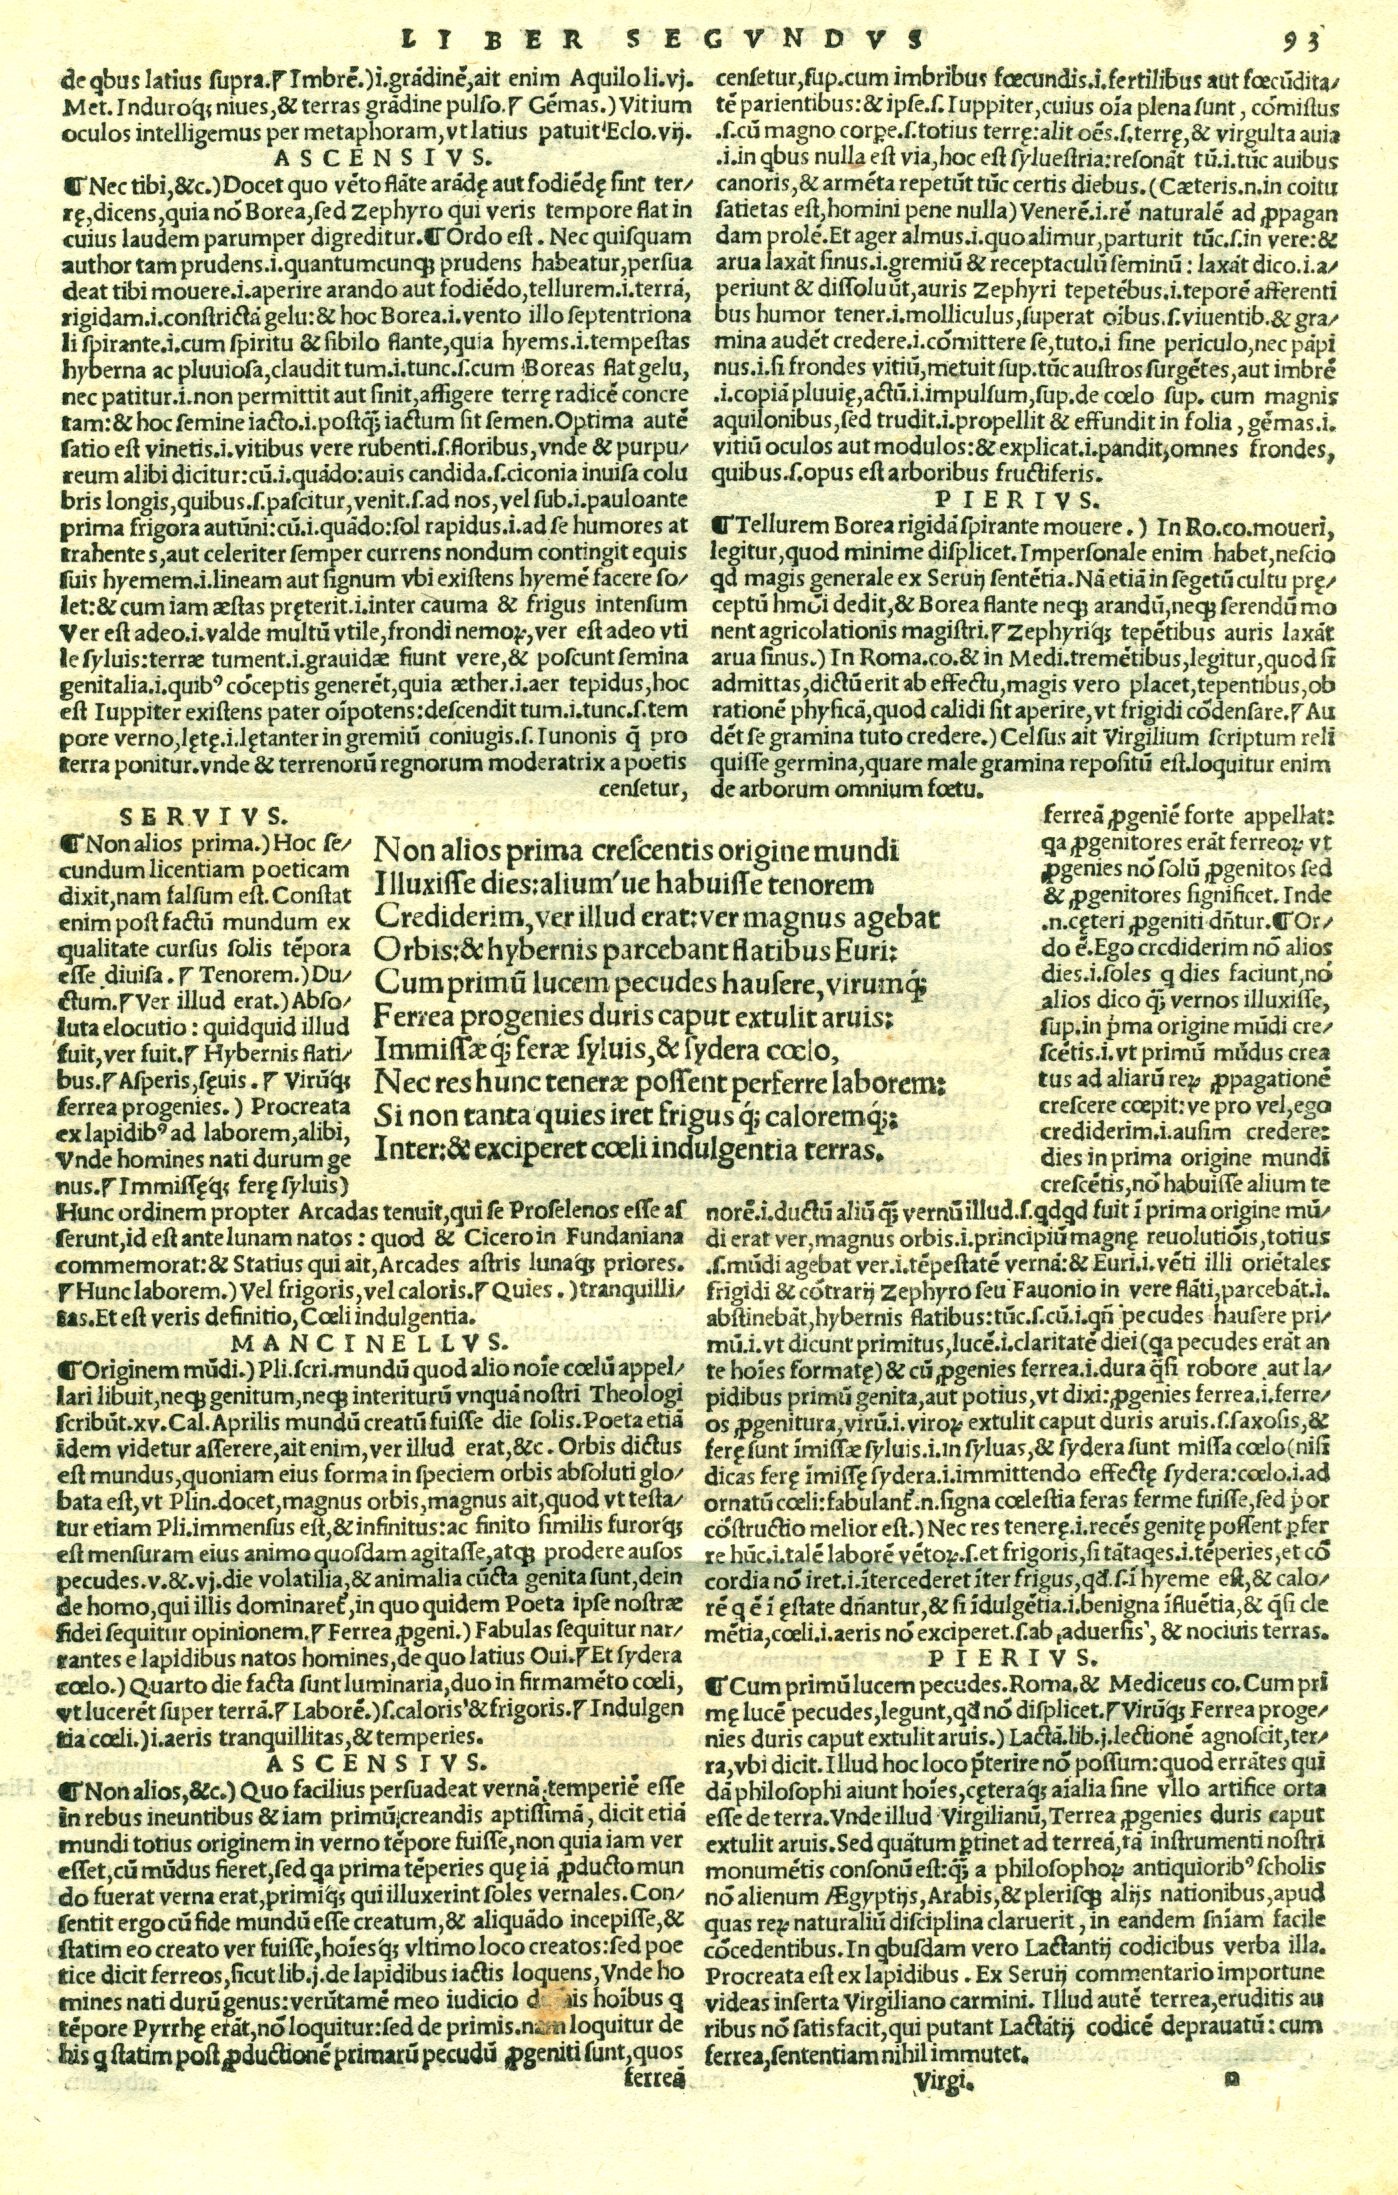 LIBER SEGVNDVS 93
de qbus latius supra.⁋Imbrē.)i.grādinē,ait enim Aquilo li.vj.
Met. Induroq́; niues,& terras grādine pulso.⁋Gēmas.) Vitium
oculos intelligemus per metaphoram, vt latius patuit Eclo. vij.
ASCENSIVS.
¶Nec tibi,&c.)Docet quo vēto flāte arādę aut fodiēdę sint ter/
rę, dicens, quia nō Borea, sed Zephyro qui veris tempore flat in
cuius laudem parumper digreditur.¶Ordo est. Nec quisquam
author tam prudens.i.quantumcunq; prudens habeatur, persua
deat tibi mouere.i.aperire arando aut fodiēdo, tellurem.i.terrā,
rigidam.i.constrictā gelu:& hoc Borea.i.vento illo septentriona
li spirante.i.cum spiritu & sibilo flante, quia hyems.i.tempestas
hyberna ac pluuiosa, claudit tum.i.tunc.s.cum Boreas flat gelu,
nec patitur.i.non permittit aut sinit, affigere terrę radicē concre
tam:& hoc semine iacto.i.postq̄; iactum sit semen. Optima autē
satio est vinetis.i.vitibus vere rubenti.s.floribus, vnde & purpu/
reum alibi dicitur:cū.i.quādo:auis candida.s.ciconia inuisa colu
bris longis, quibus.s.pascitur, venit.s.ad nos, vel sub.i.pauloante
prima frigora autūni:cū.i.quādo:sol rapidus.i.ad se humores at
trahentes, aut celeriter semper currens nondum contingit equis
suis hyemem.i.lineam aut signum vbi existens hyemē facere so/
let:& cum iam æstas pręterit.i.inter cauma & frigus intensum
Ver est adeo.i.valde multū vtile, frondi nemoꝝ, ver est adeo vti
le syluis:terræ tument.i.grauidæ fiunt vere,& poscunt semina
genitalia.i.quibꝰ cōceptis generēt, quia æther.i.aer tepidus, hoc
est Iuppiter existens pater oīpotens:descendit tum.i.tunc.s.tem
pore verno, lętę.i.lętanter in gremiū coniugis.s.Iunonis q̄ pro
terra ponitur. vnde & terrenorū regnorum moderatrix a poetis
censetur,
censetur, sup. cum imbribus fœcundis.i.fertilibus aut fœcūdita/
tē parientibus:& ipse.s.Iuppiter, cuius oīa plena sunt, cōmistus
.s.cū magno corpe.s.totius terrę:alit oēs.s.terrę,& virgulta auia
.i.in qbus nulla est via, hoc est syluestria:resonāt tū.i.tūc auibus
canoris,& armēta repetūt tūc certis diebus.(Cæteris.n.in coitu
satietas est, homini pene nulla) Venerē.i.rē naturalē ad ꝓpagan
dam prolē. Et ager almus.i.quo alimur, parturit tūc.s.in vere:&
arua laxāt sinus.i.gremiū & receptaculū seminū: laxāt dico.i.a/
periunt & dissoluūt, auris Zephyri tepetēbus.i.teporē afferenti
bus humor tener.i.molliculus, superat oībus.s.viuentib.& gra/
mina audēt credere.i.cōmittere se, tuto.i sine periculo, nec pāpi
nus.i.si frondes vitiū, metuit sup. tūc austros surgētes, aut imbrē
.i.copiā pluuię, actū.i.impulsum, sup. de cœlo sup. cum magnis
aquilonibus, sed trudit.i.propellit & effundit in folia, gēmas.i.
vitiū oculos aut modulos:& explicat.i.pandit, omnes frondes,
quibus.s.opus est arboribus fructiferis.
PIERIVS.
¶Tellurem Borea rigidā spirante mouere.) In Ro.co.moueri,
legitur, quod minime displicet. Impersonale enim habet, nescio
qd magis generale ex Seruij sentētia. Nā etiā in segetū cultu prę/
ceptū hmōi dedit,& Borea flante neq; arandū, neq; serendū mo
nent agricolationis magistri.⁋Zephyriq́; tepētibus auris laxāt
arua sinus.) In Roma.co.& in Medi.tremētibus, legitur, quod si
admittas, dictū erit ab effectu, magis vero placet, tepentibus, ob
rationē physicā, quod calidi sit aperire, vt frigidi cōdensare.⁋Au
dēt se gramina tuto credere.) Celsus ait Virgilium scriptum reli
quisse germina, quare male gramina repositū est. loquitur enim
de arborum omnium fœtu.
SERVIVS.
¶Non alios prima.) Hoc se/
cundum licentiam poeticam
dixit, nam falsum est. Constat
enim post factū mundum ex
qualitate cursus solis tēpora
esse diuisa.⁋Tenorem.) Du/
ctum.⁋Ver illud erat.) Abso/
luta elocutio: quidquid illud
fuit, ver fuit.⁋Hybernis flati/
bus.⁋Asperis, sęuis.⁋Virūq́;
ferrea progenies.) Procreata
ex lapidibꝰ ad laborem, alibi,
Vnde homines nati durum ge
nus.⁋Immissęq́; ferę syluis)
Hunc ordinem propter Arcadas tenuit, qui se Proselenos esse as
serunt, id est ante lunam natos: quod & Cicero in Fundaniana
commemorat:& Statius qui ait, Arcades astris lunaq́; priores.
⁋Hunc laborem.) Vel frigoris, vel caloris.⁋Quies.) tranquilli/
tas. Et est veris definitio, Cœli indulgentia.
MANCINELLVS.
¶Originem mūdi.) Pli.scri.mundū quod alio noīe cœlū appel/
lari libuit, neq; genitum, neq; interiturū vnquā nostri Theologi
scribūt.xv.Cal. Aprilis mundū creatū fuisse die solis. Poeta etiā
idem videtur asserere, ait enim, ver illud erat,&c. Orbis dictus
est mundus, quoniam eius forma in speciem orbis absoluti glo/
bata est, vt Plin.docet, magnus orbis, magnus ait, quod vt testa/
tur etiam Pli.immensus est,& infinitus:ac finito similis furorq́;
est mensuram eius animo quosdam agitasse, atq; prodere ausos
pecudes.v.&.vj.die volatilia,& animalia cūcta genita sunt, dein
de homo, qui illis dominaret̃, in quo quidem Poeta ipse nostræ
fidei sequitur opinionem.⁋Ferrea ꝓgeni.) Fabulas sequitur nar/
rantes e lapidibus natos homines, de quo latius Oui.⁋Et sydera
cœlo.) Quarto die facta sunt luminaria, duo in firmamēto cœli,
vt lucerēt super terrā.⁋Laborē.)s.caloris & frigoris.⁋Indulgen
tia cœli.)i.aeris tranquillitas,& temperies.
ASCENSIVS.
¶Non alios,&c.) Quo facilius persuadeat vernā temperiē esse
in rebus ineuntibus & iam primū creandis aptissimā, dicit etiā
mundi totius originem in verno tēpore fuisse, non quia iam ver
esset, cū mūdus fieret, sed qa prima tēperies quę iā ꝓducto mun
do fuerat verna erat, primiq́; qui illuxerint soles vernales. Con/
sentit ergo cū fide mundū esse creatum,& aliquādo incepisse,&
statim eo creato ver fuisse, hoīesq́; vltimo loco creatos:sed poe
tice dicit ferreos, sicut lib.j.de lapidibus iactis loquens, Vnde ho
mines nati durū genus:verūtamē meo iudicio hoībus q
tēpore Pyrrhę erāt, nō loquitur:sed de primis. nam loquitur de
his q statim post ꝓductionē primarū pecudū ꝓgeniti sunt, quos
ferreā
Non alios prima crescentis origine mundi
Illuxisse dies:alium'ue habuisse tenorem
Crediderim, ver illud erat:ver magnus agebat
Orbis:& hybernis parcebant flatibus Euri:
Cum primū lucem pecudes hausere, virumq́;
Ferrea progenies duris caput extulit aruis:
Immissæq́; feræ syluis,& sydera cœlo,
Nec res hunc teneræ possent perferre laborem:
Si non tanta quies iret frigusq́; caloremq́;:
Inter:& exciperet cœli indulgentia terras.
ferreā ꝓgeniē forte appellat:
qa ꝓgenitores erāt ferreoꝝ vt
ꝓgenies nō solū ꝓgenitos sed
& ꝓgenitores significet. Inde
.n.cęteri ꝓgeniti dn̄tur.¶Or/
do ē. Ego crediderim nō alios
dies.i.soles q dies faciunt, nō
alios dico q̄; vernos illuxisse,
sup.in p̄ma origine mūdi cre/
scētis.i.vt primū mūdus crea
tus ad aliarū reꝝ ꝓpagationē
crescere cœpit:ve pro vel, ego
crediderim.i.ausim credere:
dies in prima origine mundi
crescētis, nō habuisse alium te
norē.i.ductū aliū q̄; vernū illud.s.qdqd fuit ī prima origine mū/
di erat ver, magnus orbis.i.principiū magnę reuolutiōis, totius
.s.mūdi agebat ver.i.tēpestatē vernā:& Euri.i.vēti illi oriētales
frigidi & cōtrarij Zephyro seu Fauonio in vere flāti, parcebāt.i.
abstinebāt, hybernis flatibus:tūc.s.cū.i.qn̄ pecudes hausere pri
mū.i.vt dicunt primitus, lucē.i.claritatē diei (qa pecudes erāt an
te hoīes formatę) & cū ꝓgenies ferrea.i.dura q̄si robore aut la/
pidibus primū genita, aut potius, vt dixi:ꝓgenies ferrea.i.ferre/
os ꝓgenitura, virū.i.viroꝝ extulit caput duris aruis.s.saxosis,&
ferę sunt īmissæ syluis.i.in syluas,& sydera sunt missa cœlo (nisi
dicas ferę īmissę sydera.i.immittendo effectę sydera:cœlo.i.ad
ornatū cœli:fabulant̃.n.signa cœlestia feras ferme fuisse, sed p̄or
cōstructio melior est.) Nec res tenerę.i.recēs genitę possent ꝑfer
re hūc.i.talē laborē vētoꝝ.s.et frigoris, si tāta qes.i.tēperies, et cō
cordia nō iret.i.ītercederet īter frigus, qd̄.s.ī hyeme est,& calo/
rē q ē ī ęstate dn̄antur,& si īdulgētia.i.benigna īfluētia,& q̄si cle
mētia, cœli.i.aeris nō exciperet.s.ab aduersis,& nociuis terras.
PIERIVS.
¶Cum primū lucem pecudes. Roma.& Mediceus co. Cum pri
mę lucē pecudes, legunt, qd̄ nō displicet.⁋Virūq́; Ferrea proge/
nies duris caput extulit aruis.) Lactā.lib.j.lectionē agnoscit, ter/
ra, vbi dicit. Illud hoc loco p̄terire nō possum:quod errātes qui
dā philosophi aiunt hoīes, cęteraq́; aīalia sine vllo artifice orta
esse de terra. Vnde illud Virgilianū, Terrea ꝓgenies duris caput
extulit aruis. Sed quātum ꝑtinet ad terreā, tā instrumenti nostri
monumētis consonū est:q̄; a philosophoꝝ antiquioribꝰ scholis
nō alienum Ægyptijs, Arabis,& plerisq; alijs nationibus, apud
quas reꝝ naturaliū disciplina claruerit, in eandem sn̄iam facile
cōcedentibus. In qbusdam vero Lactantij codicibus verba illa.
Procreata est ex lapidibus. Ex Seruij commentario importune
videas inserta Virgiliano carmini. Illud autē terrea, eruditis au
ribus nō satisfacit, qui putant Lactātij codicē deprauatū: cum
ferrea, sententiam nihil immutet.
Virgi. n